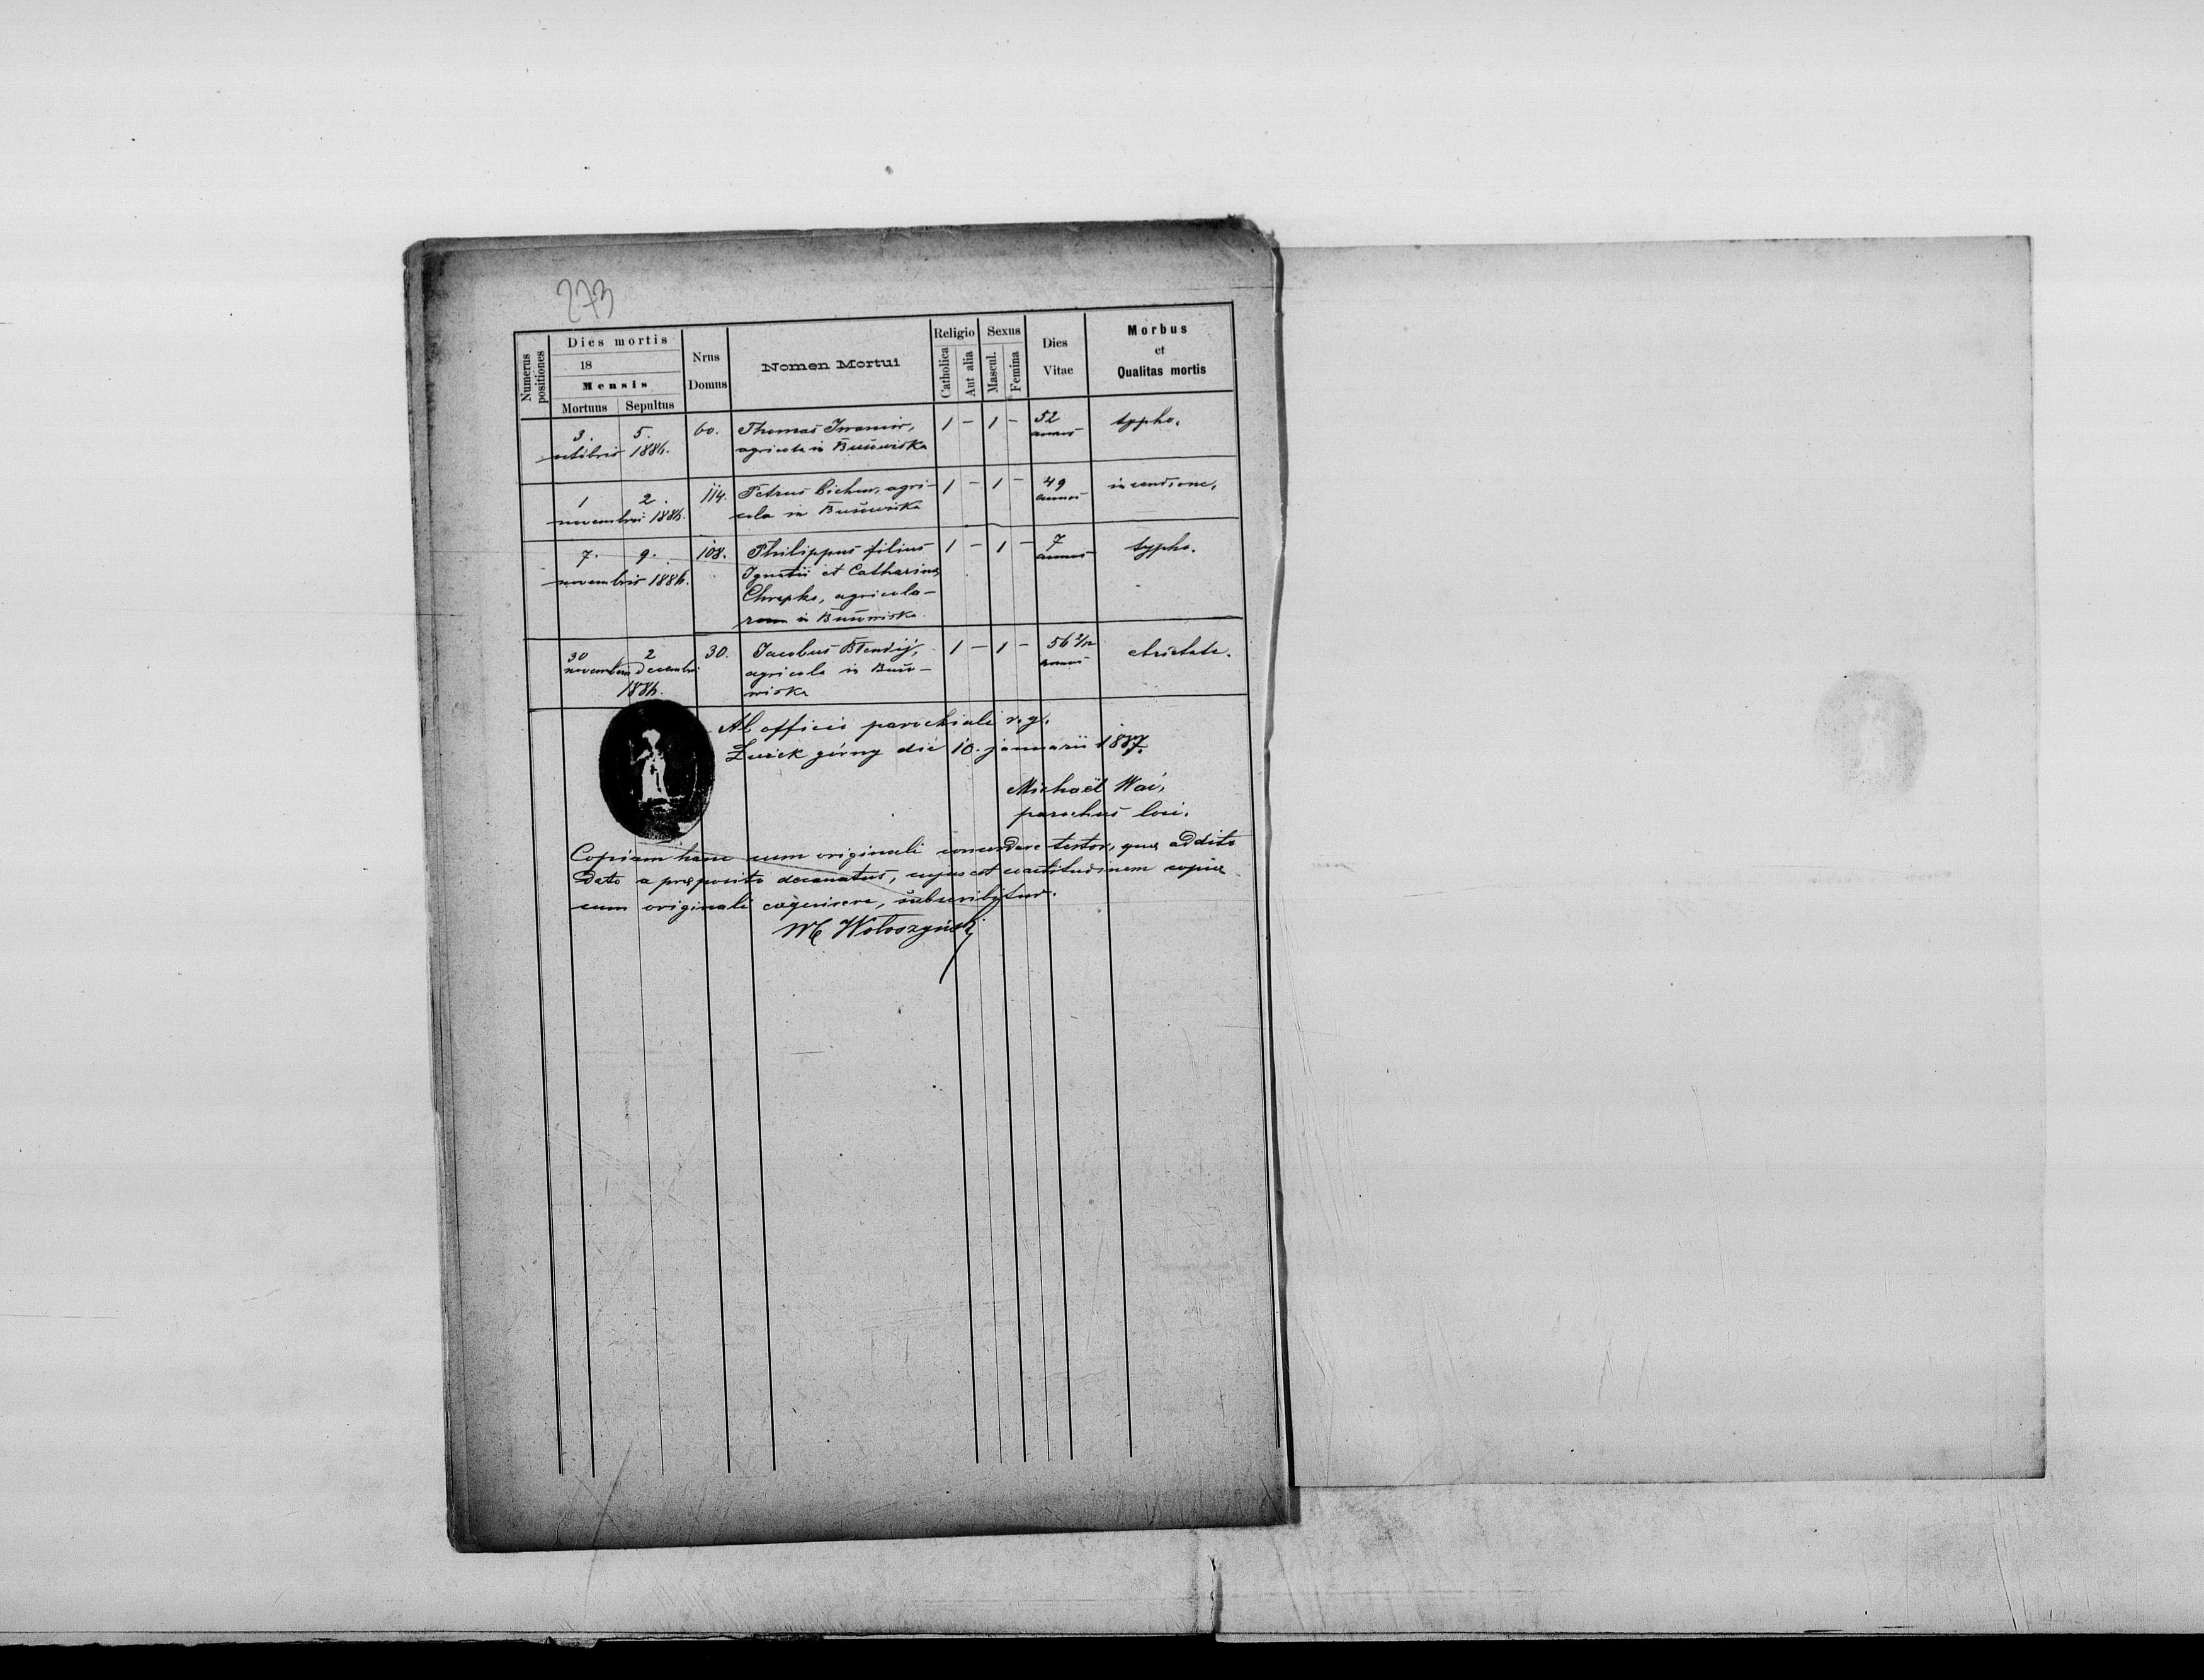 273
Numerus positiones
Dies mortis
18
Mensis
Mortuus Sepultus
Nrus Domus
Nomen Mortui
Religio
Catholica
Aut alia
Sexus
Mascul.
Femina
Dies Vitae
Morbus
et
Qualitas mortis
3. 5. 60. Thomas 1 – 1 – 52 typho.
octobris 1886. agricola in Busowiska annos
1 2. 114. Petrus agri- 1 – 1 – 49
novembris 1886. cola in Busowiska annos
7. 9. 108. Philippus filius 1 – 1 – 7 typho.
novembris 1886. Ignatii et Catharina annos
agricola-
rum in Busowiska.
30 2 30. Jacobus 1 – 1 – 56 2/12
novembris Decembris agricola in Buso- annos
1886. wiska
Ab officio parochiali r. g.
górny die 10. januarii 1887.
Michaël
parochus loci.
Copiam hanc cum originali concordare testor, addito
dato a præposito decanatus, cujus est copiæ
cum originali subscribitur.
Wołoszyński